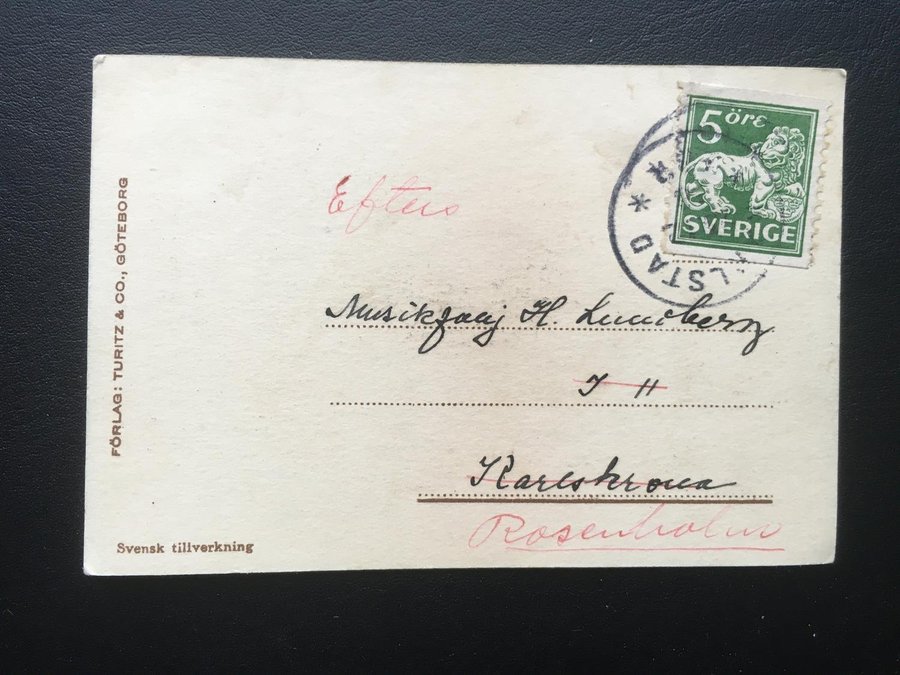 FÖRLAG: TURITZ & CO., GÖTEBORG
5 öre
SVERIGE
LSTAD
Efters
Musikfanj H. Lundberg
I H
Karlskrona
Rosenholm
Svensk tillverkning